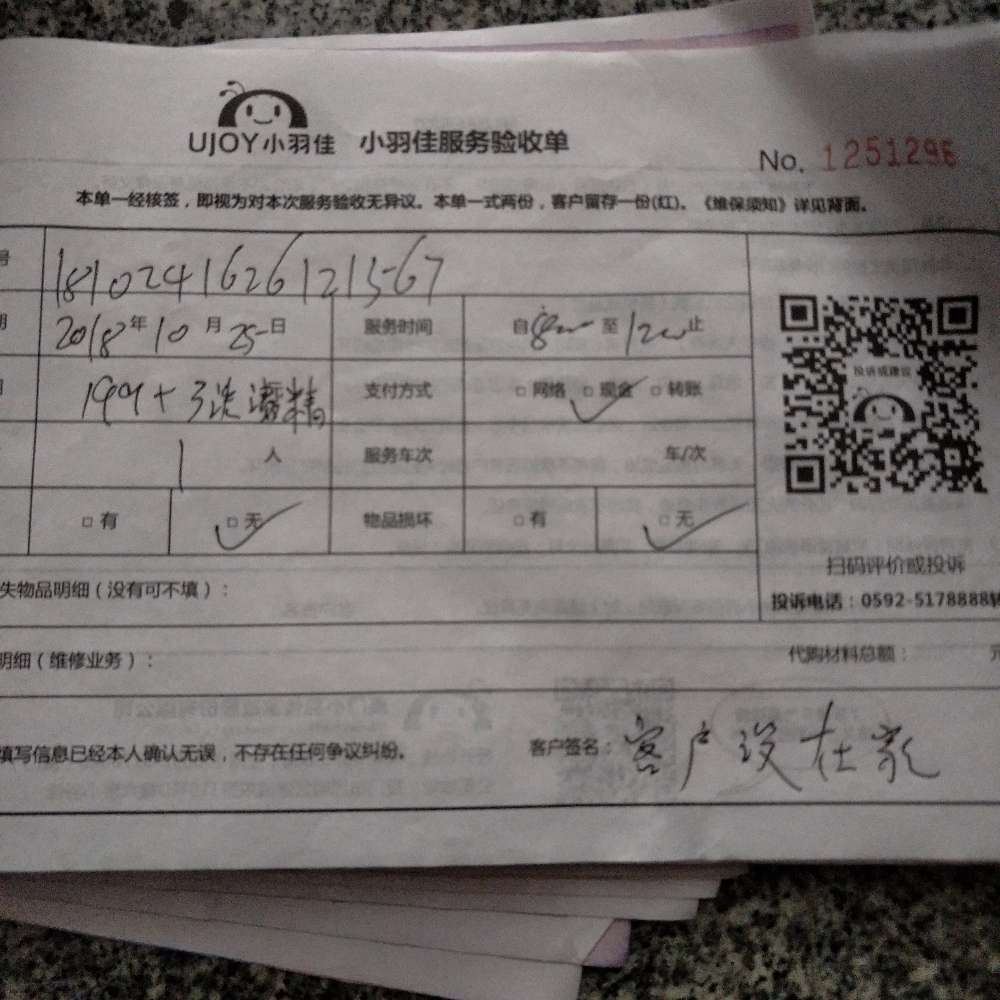 UJOY小羽佳 小羽佳服务验收单
No. 1251296
本单一经核签，即视为对本次服务验收无异议。本单一式两份，客户留存一份(红)。《维保须知》详见背面。
号 1810241626121567
期 2018年10月25日 服务时间 自8:00至12:00止
199+3洗洁精 支付方式 □网络 □现金 □转账
1人 服务车次 年/次
□有 □无 物品损坏 □有 □无
投诉或建议
扫码评价或投诉
失物品明细（没有可不填）： 投诉电话：0592-5178888转
明细（维修业务）： 代购材料总额： 元
填写信息已经本人确认无误，不存在任何争议纠纷。 客户签名：客户没在家